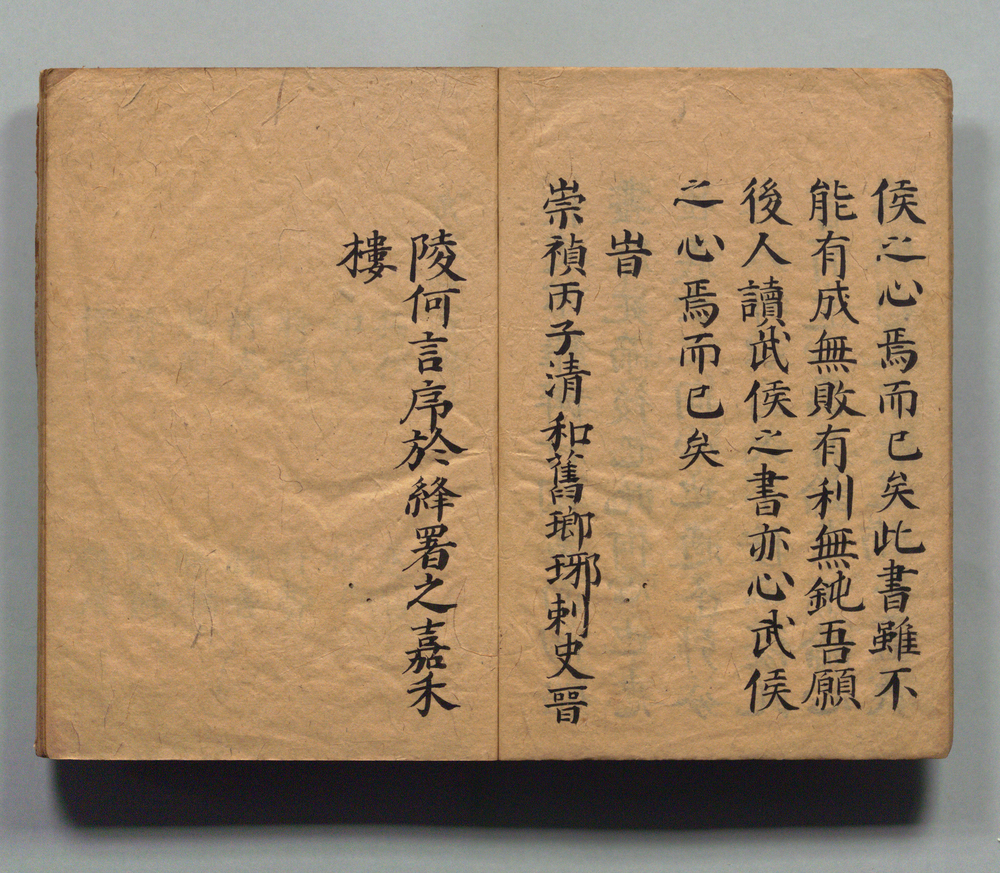 侯之心焉而已矣此書雖不
能有成無敗有利無鈍吾願
後人讀武侯之書亦心武侯
之心焉而已矣
旹
崇禎丙子清和舊瑯琊刺史晉
陵何言序於絳署之嘉禾
樓